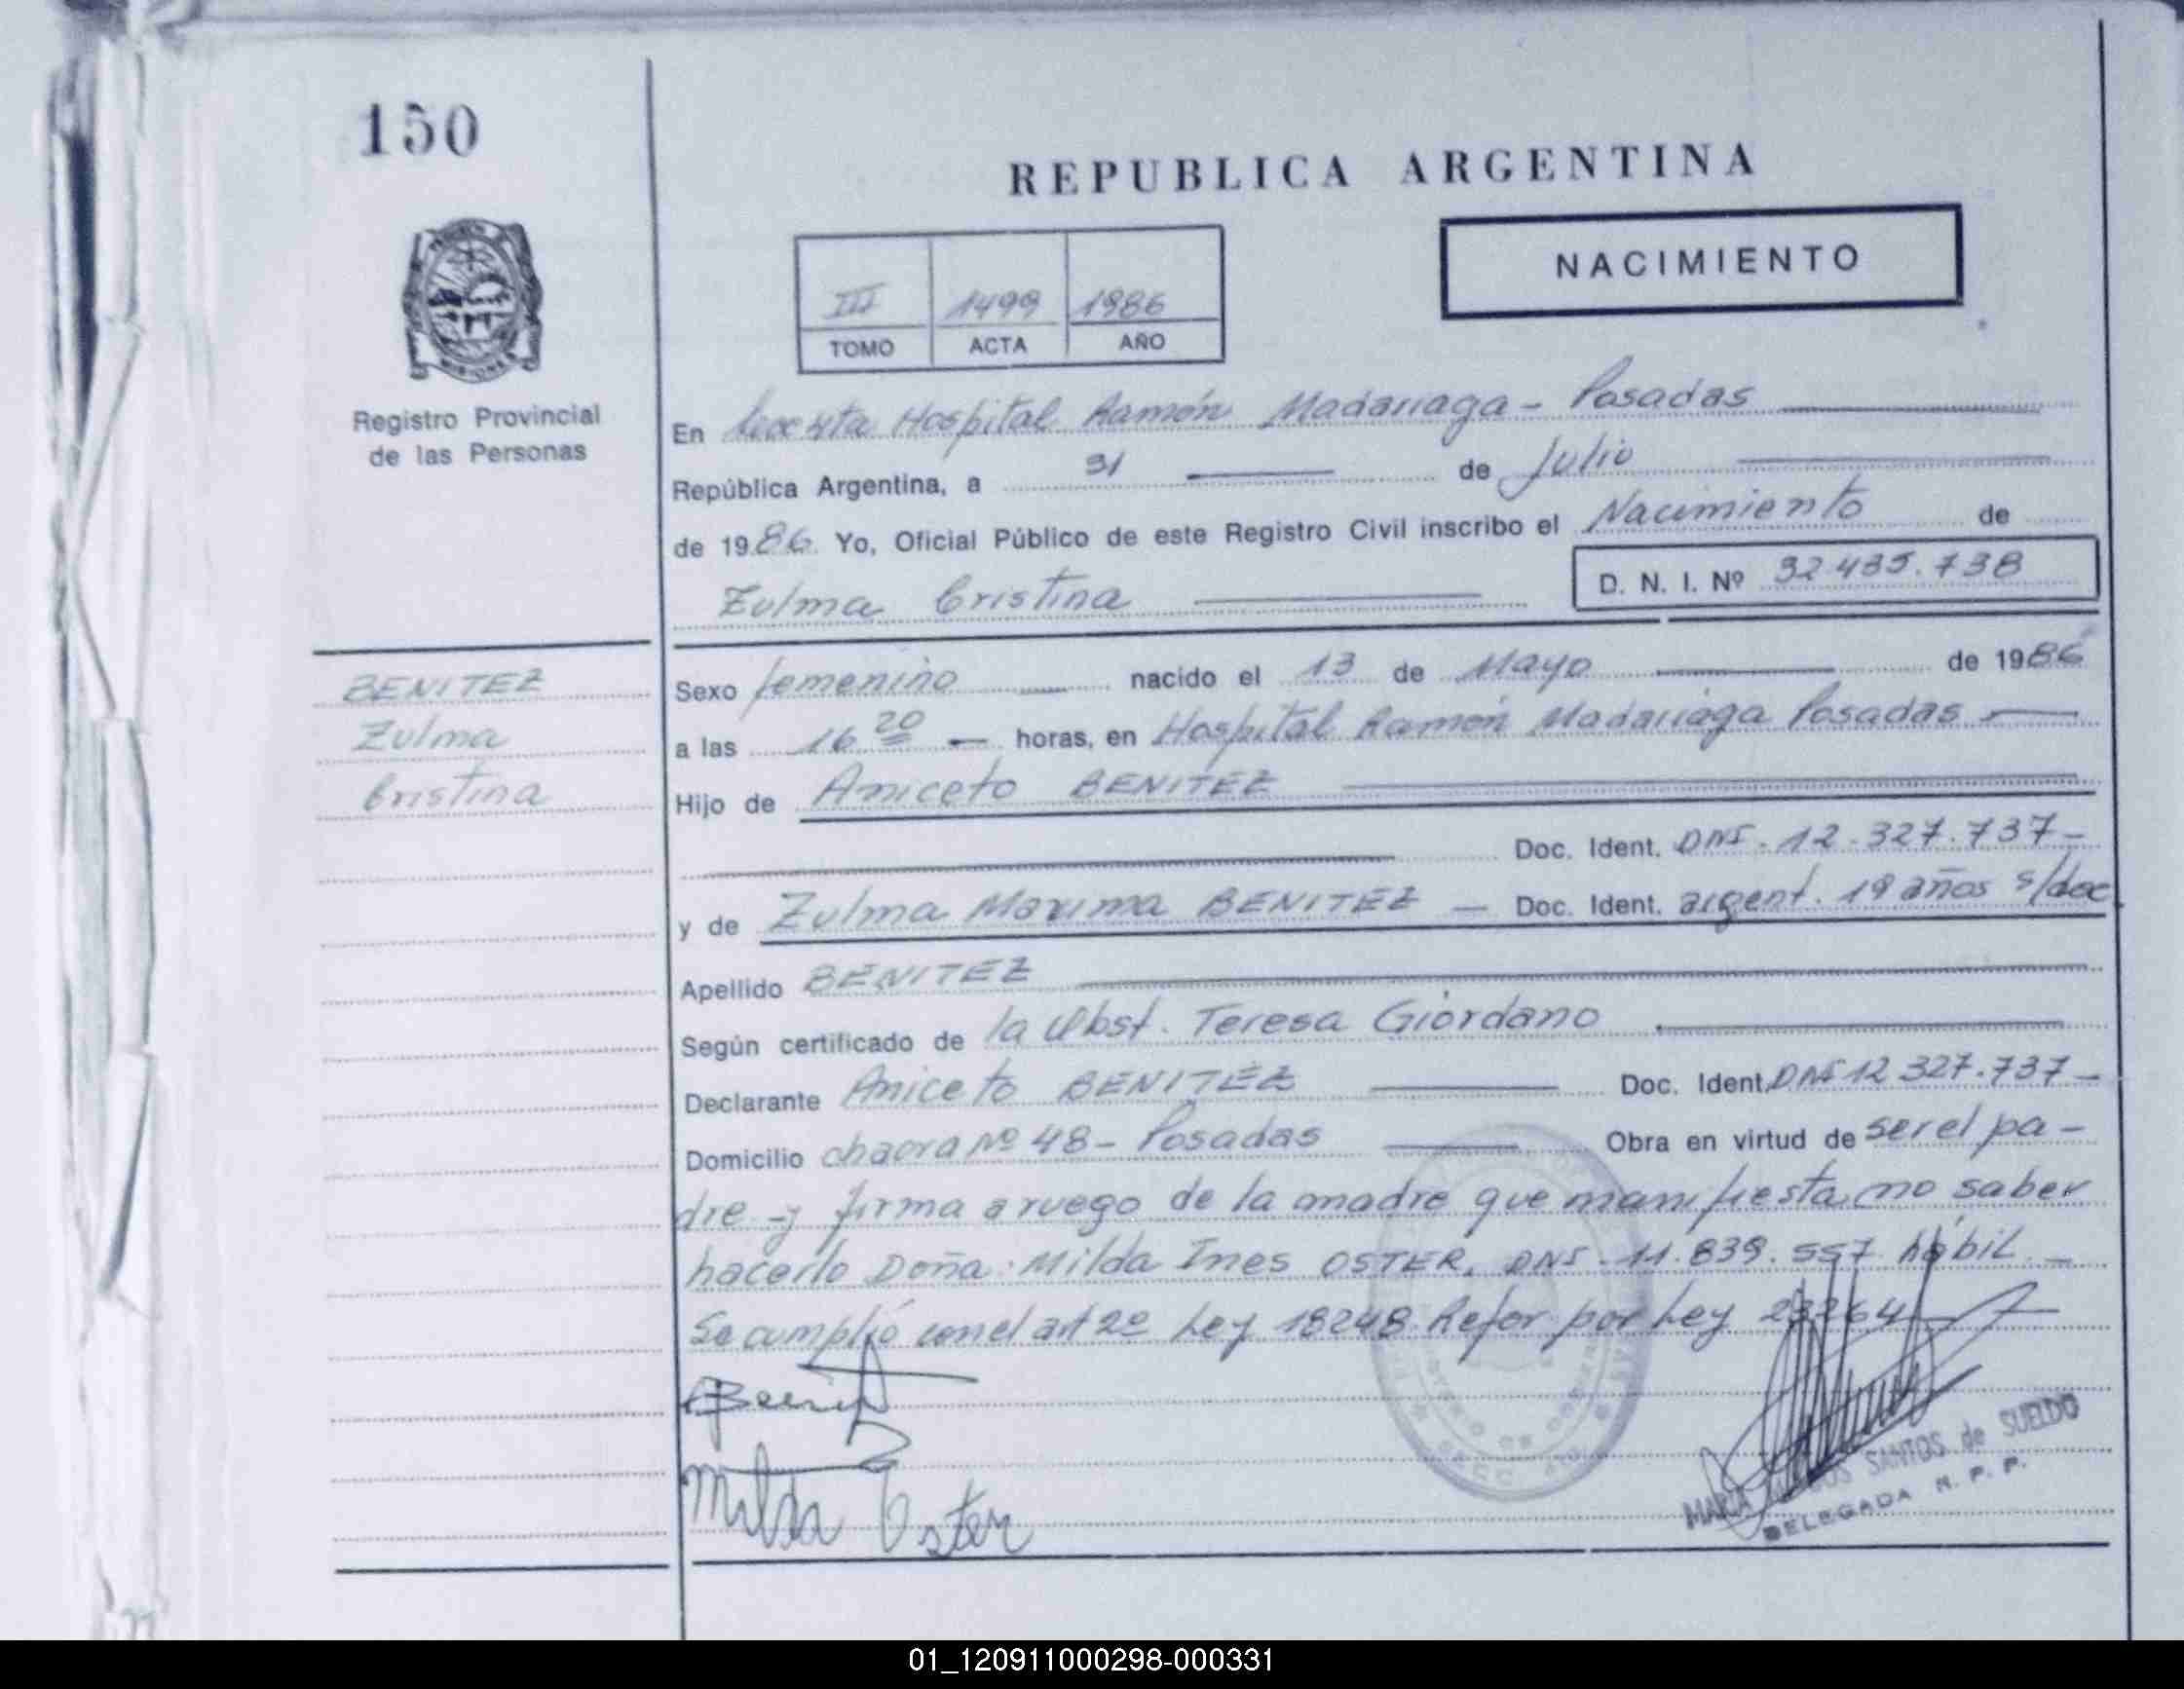 150
REPUBLICA ARGENTINA
NACIMIENTO
III 1499 1986
TOMO ACTA AÑO
Registro Provincial
de las Personas
En Hospital Ramón Madariaga - Posadas
República Argentina, a 31 de Julio
de 1986 Yo, Oficial Público de este Registro Civil inscribo el Nacimiento de
Zulma Cristina D. N. I. Nº 32.435.738
BENITEZ
Zulma
Cristina
Sexo femenino nacido el 13 de Mayo de 1986
a las 16 20 horas, en Hospital Ramón Madariaga Posadas
Hijo de Aniceto BENITEZ
Doc. Ident. DNI. 12.327.737-
y de Zulma Maxima BENITEZ - Doc. Ident. argent. 19 años s/doc.
Apellido BENITEZ
Según certificado de la Obst. Teresa Giordano
Declarante Aniceto BENITEZ Doc. Ident. DNI 12.327.737-
Domicilio chacra Nº 48- Posadas Obra en virtud de ser el pa-
dre -y firma a ruego de la madre que manifiesta no saber
hacerlo Doña: Milda Ines OSTER, DNI-11.839.557 hábil.-
Se cumplió con el art 2º Ley 18248 Refor por Ley 23264
Milda Oster
MARIA SANTOS de SUELDO
DELEGADA R. P. P.
01_120911000298-000331